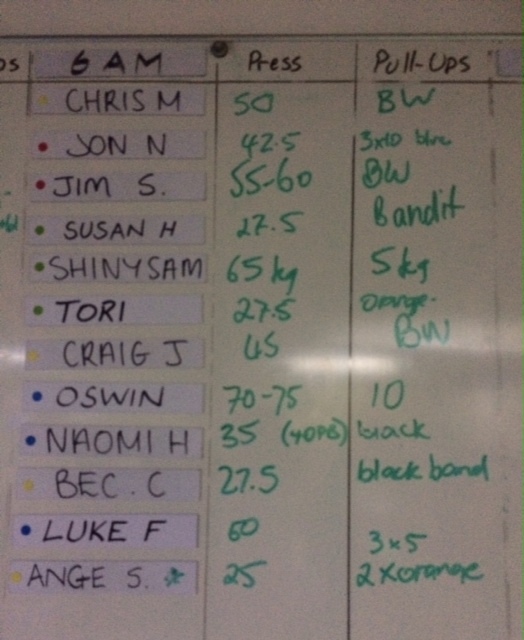 6 AM Press Pull-Ups
CHRIS M 50 BW
JON N 42.5 3x10 blue
JIM S. 55-60 BW
SUSAN H 27.5 Bandit
SHINYSAM 65kg 5kg
TORI 27.5 orange.
CRAIG J 45 BW
OSWIN 70-75 10
NAOMI H 35 (40PB) black
BEC. C 27.5 black band
LUKE F 60 3x5
ANGE S. 25 2xorange